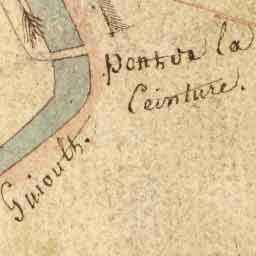 Pont de la
Ceinture.
Guiouth.